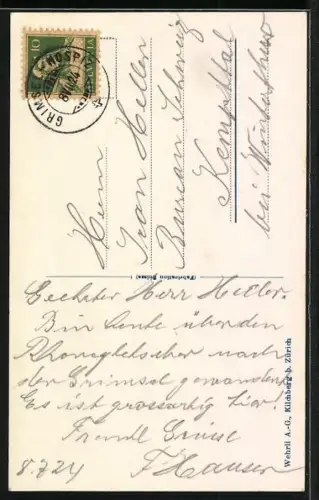 10
HELVETIA
GRIMSEL HOSP
8.VII.24
Herrn
Ivan Heller
Bureau Schweiz
Kemptthal
bei Winterthur
(Fabrication Suisse)
Geehrter Herr Heller.
Bin heute über den
Rhonegletscher nach
der Grimsel gewandert
Es ist grossartig hier!
Freundl Grüsse
F Hauser
8.7.24
Wehrli A.-G., Kilchberg b. Zürich